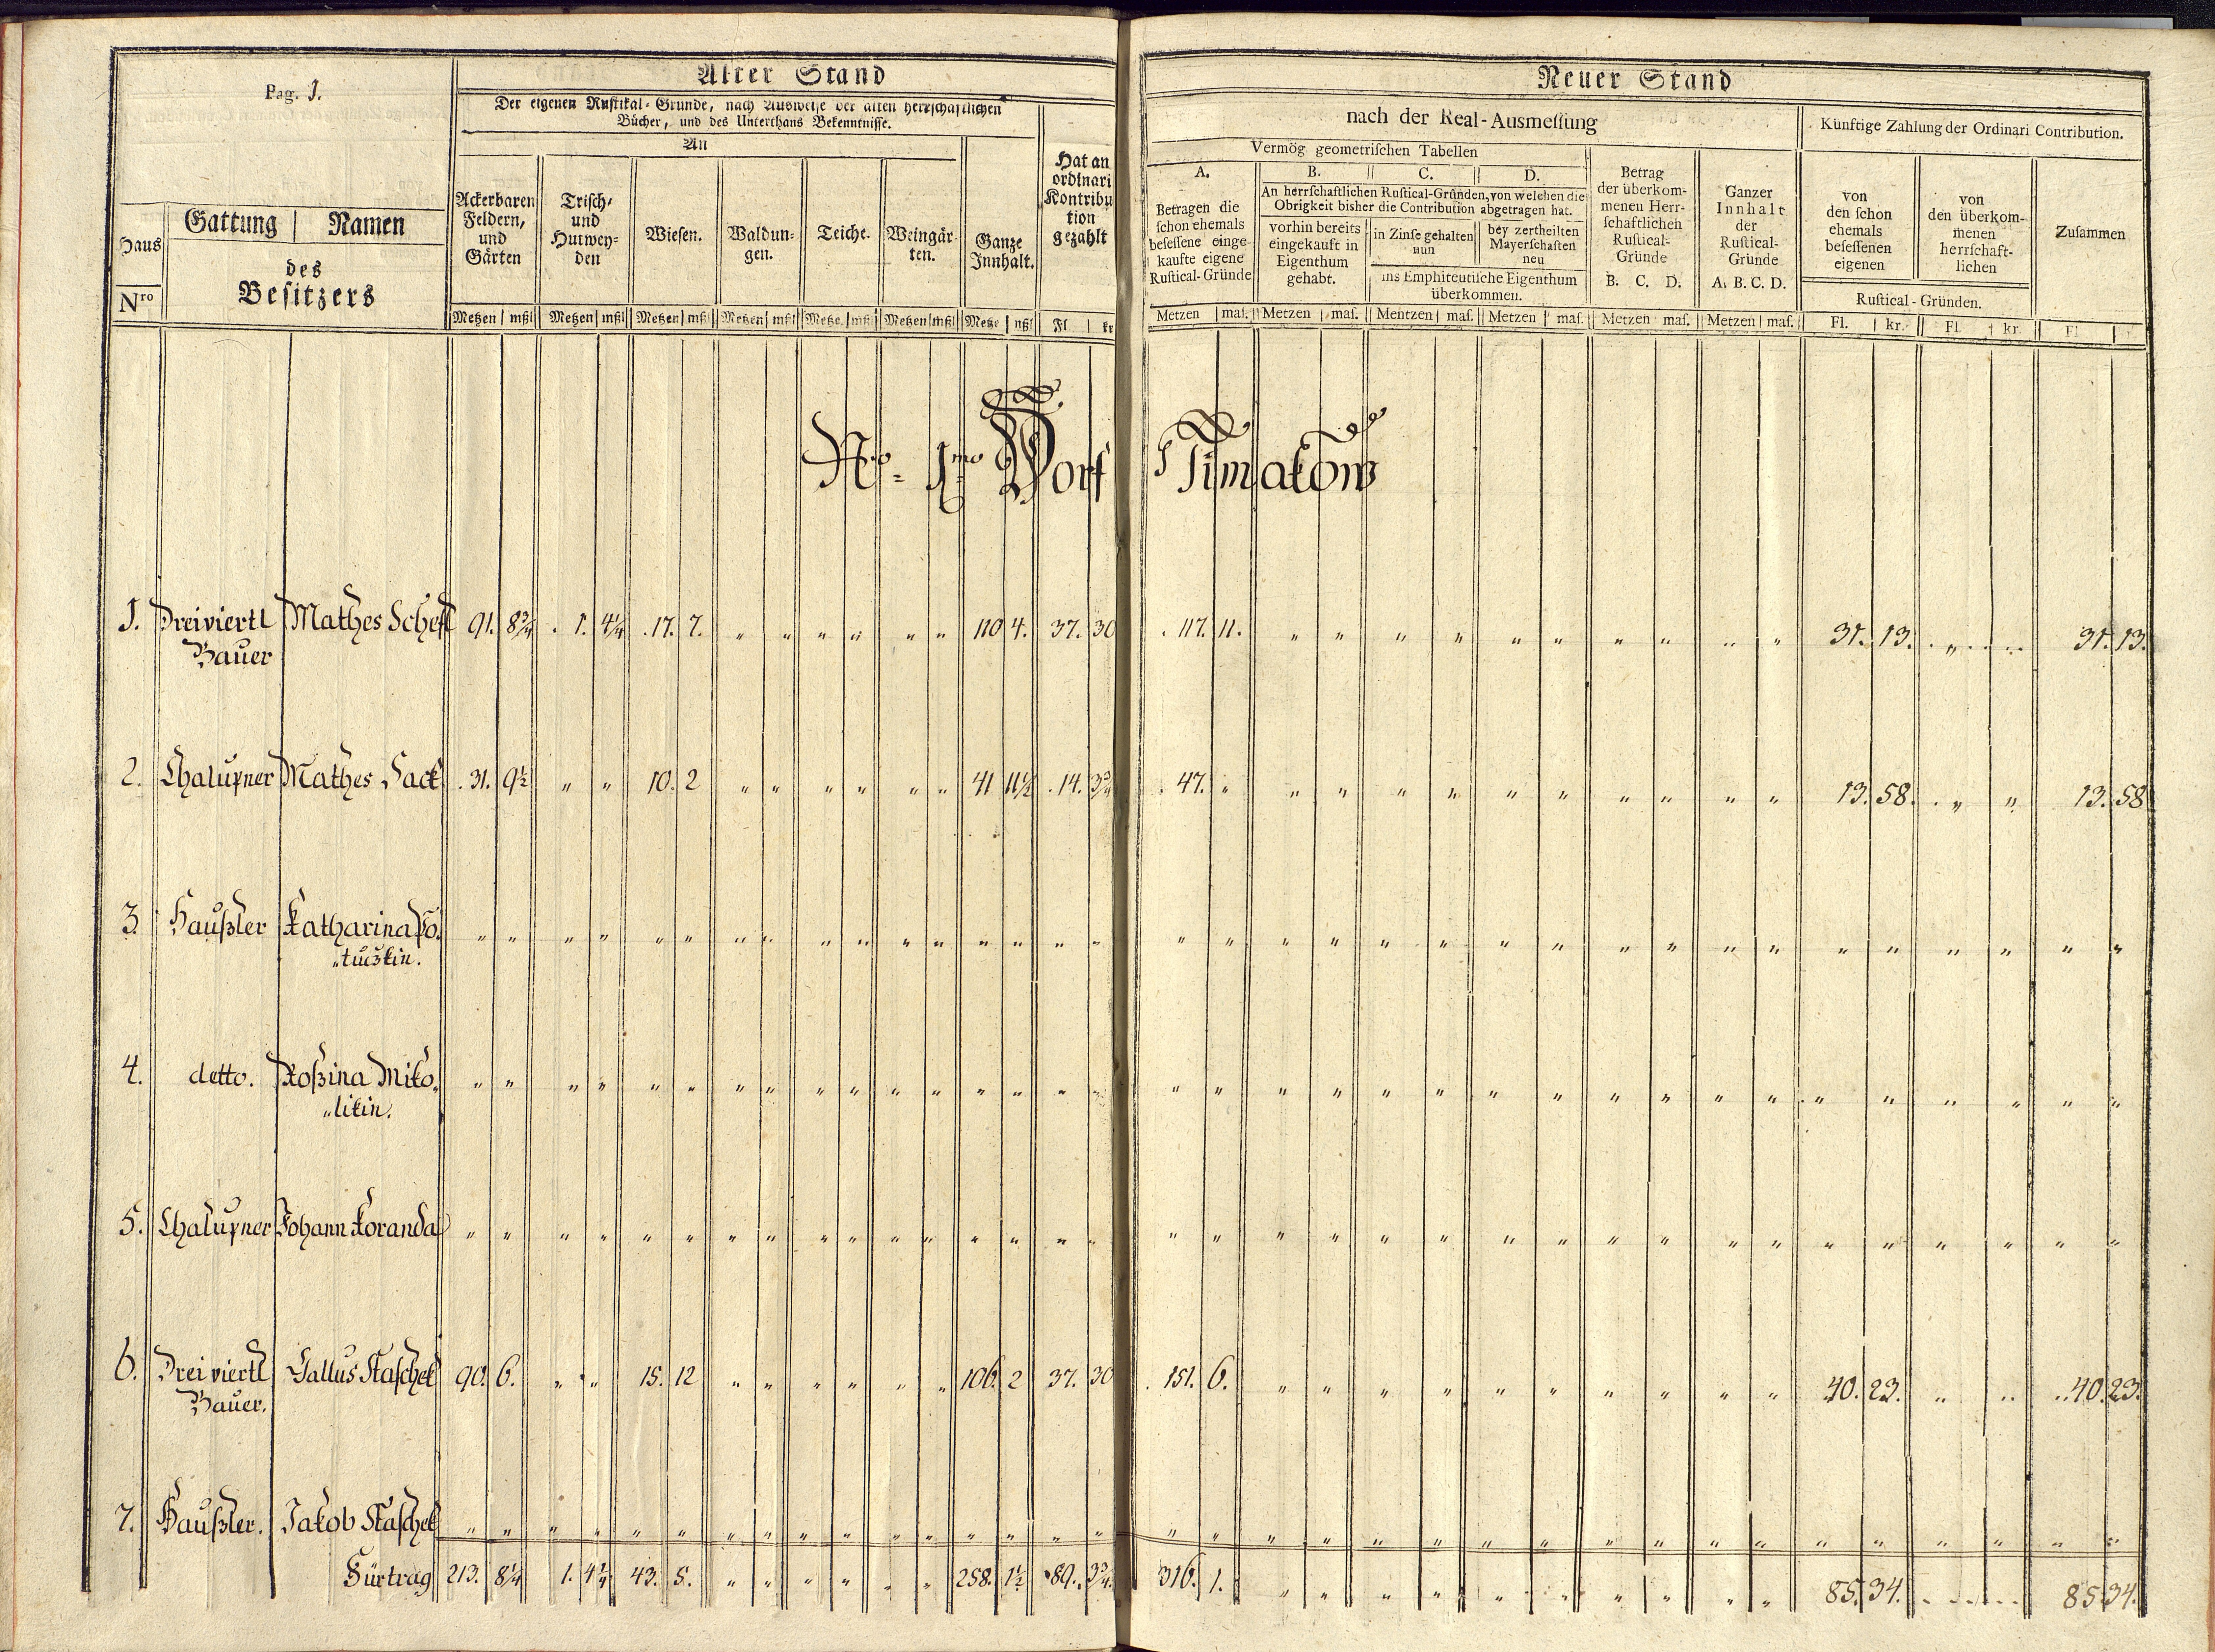 Pag. 1.
Alter Stand
Der eigenen Rustikal-Gründe, nach Ausweise der alten herrschaftlichen
Bücher, und des Unterthans Bekenntnisse.
An
Haus
Nro
Gattung | Namen
des
Besitzers
Ackerbaren
Feldern,
und
Gärten
Trisch-
und
Hutwey-
den
Wiesen.
Waldun-
gen.
Teiche.
Weingär-
ten.
Ganze
Innhalt.
Hat an
ordinari
Kontribu
tion
gezahlt
Metzen | mßl Metzen | mßl Metzen | mßl Metzen | mßl Metze | mßl Metzen | mßl Metze | mßl Fl | kr
Neuer Stand
nach der Real-Ausmessung
Künftige Zahlung der Ordinari Contribution.
Vermög geometrischen Tabellen
A.
Betragen die
schon ehemals
besessene einge-
kaufte eigene
Rustical-Gründe
B. C. D.
An herrschaftlichen Rustical-Gründen, von welchen die
Obrigkeit bisher die Contribution abgetragen hat.
vorhin bereits
eingekauft in
Eigenthum
gehabt.
in Zinse gehalten
nun
bey zertheilten
Mayerschaften
neu
ins Emphiteutische Eigenthum
überkommen.
Betrag
der überkom-
menen Herr-
schaftlichen
Rustical-
Gründe
B. C. D.
Ganzer
Innhalt
der
Rustical-
Gründe
A. B. C. D.
von
den schon
ehemals
besessenen
eigenen
von
den überkom-
menen
herrschaft-
lichen
Rustical-Gründen.
Zusammen
Metzen | mas. Metzen | mas. Mentzen | mas. Metzen | mas. Metzen mas. Metzen | mas. Fl. | kr. Fl. | kr. Fl.
Nro 1mo Dorf Timakow
1. Dreiviertl Mathes Scheff 91. 8¾ . 1. 4¼ . 17. 7. " " " " " " 110 4. 37. 30 . 117. 11. " " " " " " " " " " 31. 13. . " . . . 31. 13.
Bauer
2. Chalupner Mathes Sack . 31. 9½ " " 10. 2 " " " " " " 41 11½ . 14. 3¾ . 47. " " " " " " " " " " " 13. 58. . " " 13. 58
3. Haußler Katharina Po " " " " " " " " " " " " " " " " " " " " " " " " " " " " " " " " " "
"tuczkin.
4. detto. Roßina Miko, " " " " " " " " " " " " " " " " " " " " " " " " " " " " " " " " " "
"likin.
5. Chalupner Johann Koranda " " " " " " " " " " " " " " " " " " " " " " " " " " " " " " " " " "
6. Dreiviertl Gallus Staschek 90. 6. " " 15. 12 " " " " " " 106. 2 37. 30 . 151. 6. " " " " " " " " " " 40. 23. " " " 40. 23.
Bauer.
7. Haußler. Jakob Staschek " " " " " " " " " " " " " " " " " " " " " " " " " " " " " " " " " "
Fürtrag 213. 8¼ 1. 4¼ 43. 5. " " " " " " 258. 1½ 89. 3¾ 316. 1. " " " " " " " " " " 85. 34. . . . . . 85. 34.